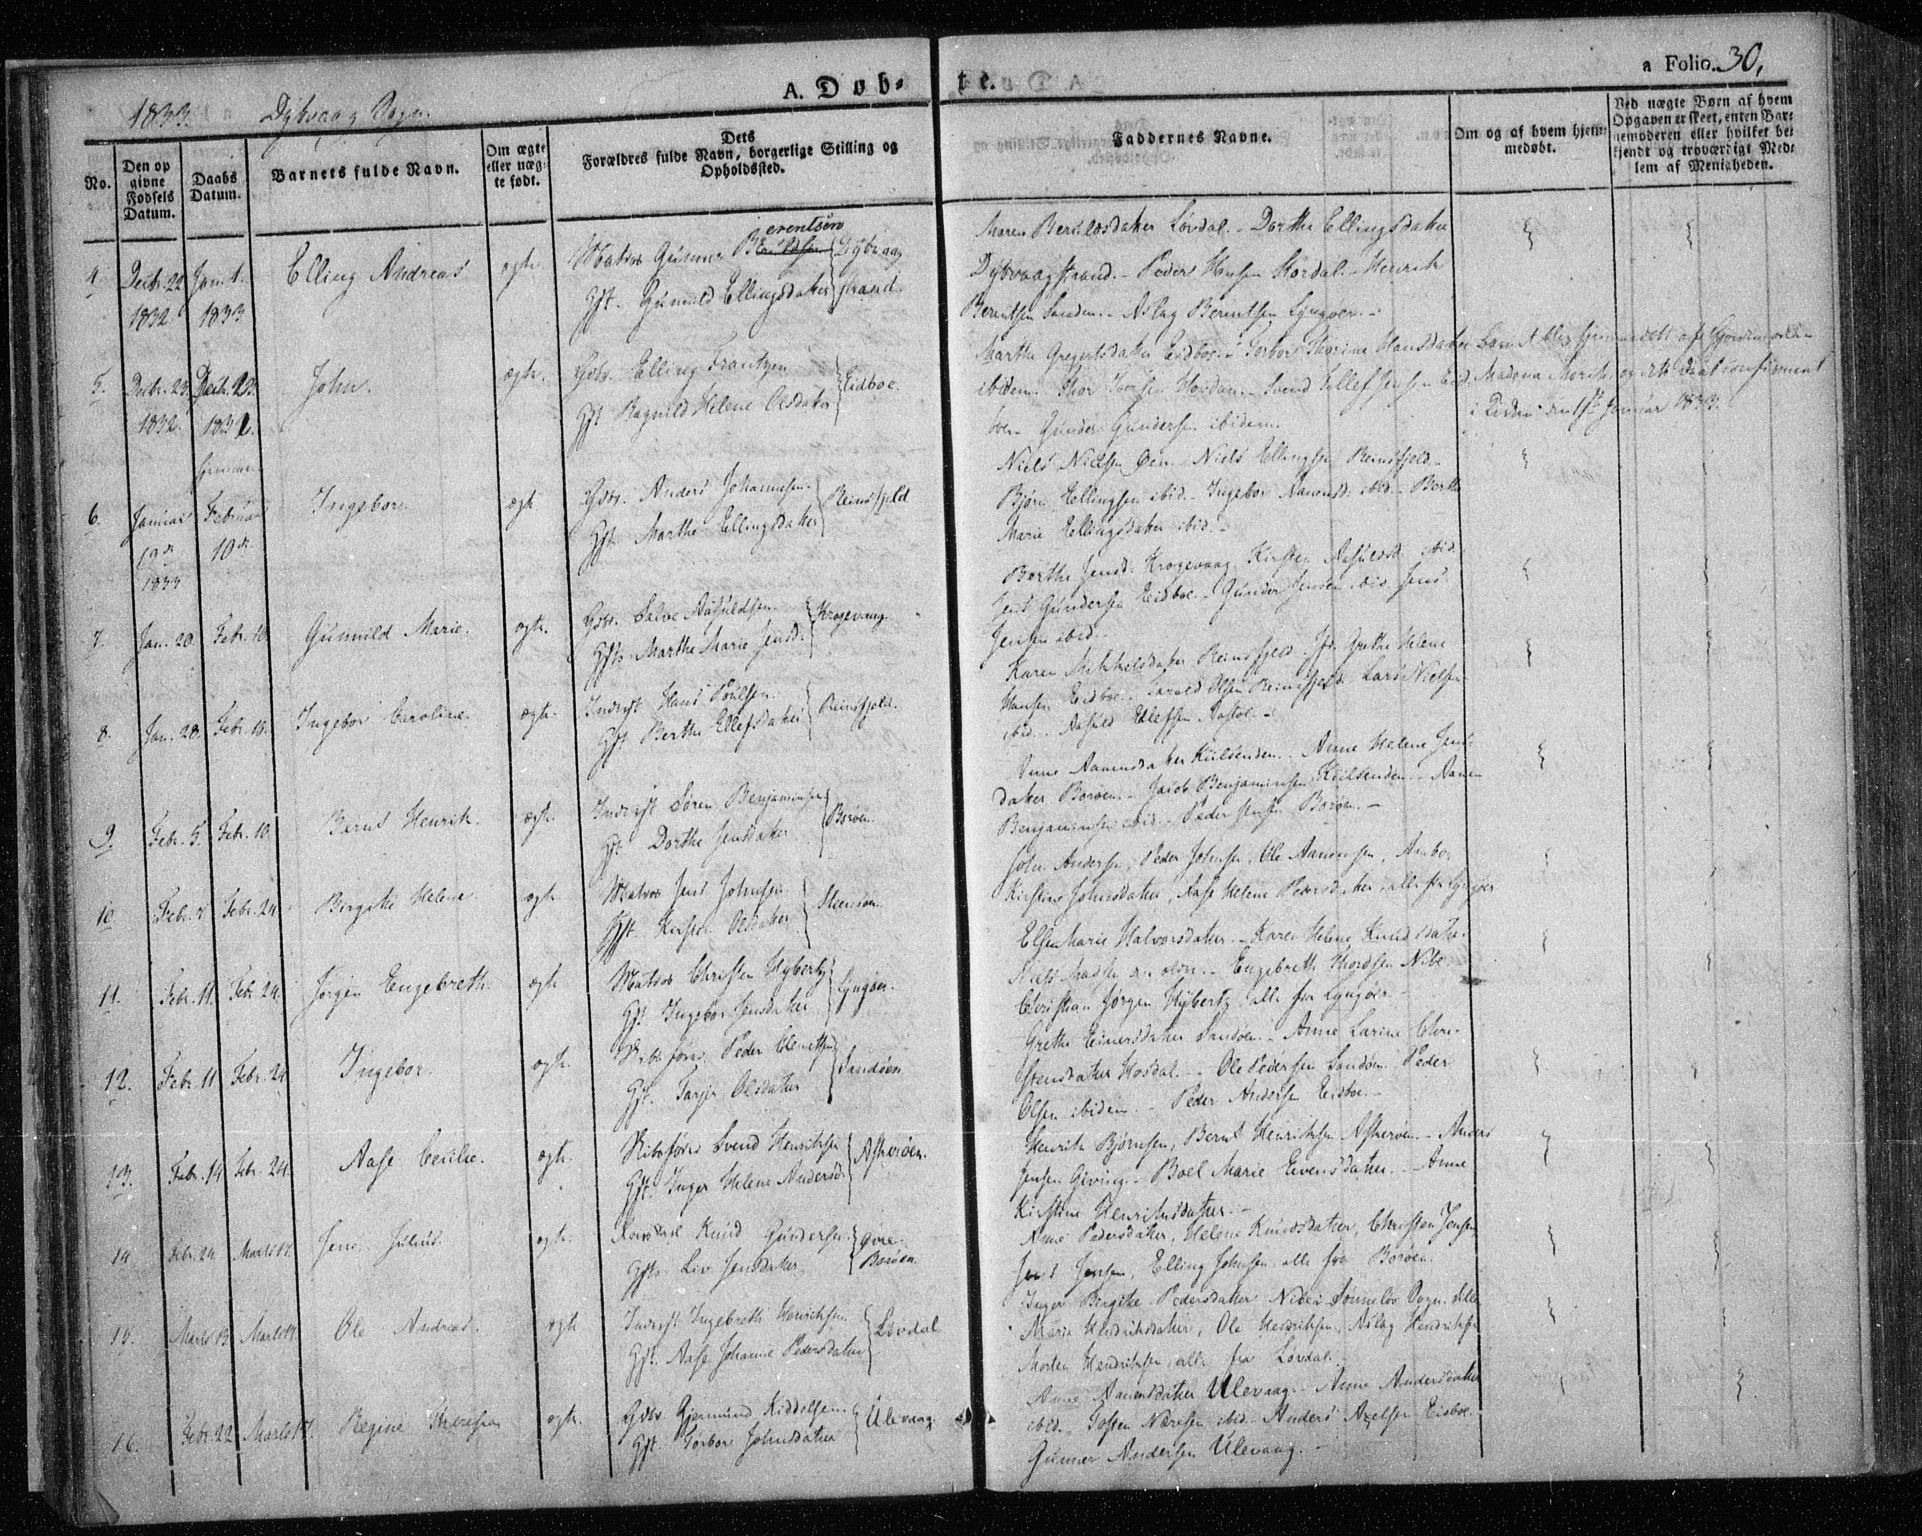 1833. Dybvaag Sogn.
A. Døb-
te.
a Folio. 30,
No.
Den op
givne
Fødsels
Datum.
Daabs
Datum.
Barnets fulde Navn.
Om ægte
eller uæg-
te født.
Dets
Forældres fulde Navn, borgerlige Stilling og
Opholdssted.
Faddernes Navne.
Om og af hvem hjem-
medøbt.
Ved uægte Børn af hvem
Opgaven er skeet, enten Bar-
nemoderen eller hvilket be-
kjendt og troværdigt Med-
lem af Menigheden.
4. Decbr. 22 1832 Jan. 1. 1833 Elling Andreas ægte.
Matros Gunner Berentsen
Gft. Gunuld Ellingsdatter
Dybvaag
strand.
Maren Bertelsdatter Løvdal. - Dorthe Ellingsdatter
Dybvaagstrand. - Peder Hansen Hordal. - Henrik
Berentsen Sanden. - Aslag Berentsen Lyngøer. -
5. Decbr. 23. 1832. Decbr. 23. 1832. John. ægte.
Gdbr. Elling Frantzen
Gft. Ragnild Helene Olsdatter
Eidboe.
Marthe Gregertsdatter Eidboe. - Torbor Thorine Hansdatter
ibidem. Thor Iversen Hovdan. - Svend Ellefsen Eid-
boe - Gunder Gundersen ibidem.
Barnet blev hjemmedøbt af Gjordemoderen
Madam Mørch, og dets Daab confirmeret
i Kirken den 1ste Januar 1833.
6. Januar 12te 1833 Februar 10de. Ingebor. ægte
Gdbr. Anders Johannesen
Gft. Marthe Ellingsdatter
Reinsfjeld
Niels Nielsen Øen - Niels Ellingsen Reinsfjeld -
Bjørn Ellingsen ibid. - Ingebor Aanonsd. ibid. - Berthe
Marie Ellingsdatter ibid. -
7. Jan. 20. Febr. 10 Gunuild Marie. ægte.
Gdbr. Salve Aasuldsen
Gft. Marthe Marie Jensd.
Krogevaag
Berthe Jensd. Krogevaag. Kirsten Aasuldsd. ibid.
Jens Gundersen Eidboe. - Gunder Jensen ibid. Jens
Jensen ibid. -
8. Jan. 28. Febr. 10. Ingebor Caroline. ægte.
Inderst Hans Poulsen
Gft. Berthe Ellefsdatter
Reinsfjeld.
Karen Mikkelsdatter Reinsfjeld. Jfr. Grethe Helene
Hansen Eidboe. - Tarald Olsen Reinsfjeld. Lars Nielsen
ibid. - Aasuld Ellefsen Aastøl. -
9. Febr. 5. Febr. 10. Bernt Henrik. ægte.
Inderst Søren Benjaminsen
Gft. Dorthe Jensdatter
Borøen
Anne Aanensdatter Kiilsenden. Anne Helene Jens-
datter Borøen. - Jacob Benjaminsen Kiilsenden. - Aanen
Benjaminsen ibid. - Peder Jensen Borøen. -
10 Febr. 5 Febr. 24. Birgite Helene. ægte.
Matros Jens Johnsen
Gft. Kirsten Olsdatter
Steensøen
John Andersen, Peder Johnsen, Ole Aanensen, Anbor
Kirstine Johnsdatter, Aase Helene Pedersdatter, alle fra Lyngøer
11. Febr. 11. Febr. 24. Jørgen Engebreth. ægte.
Matros Christen Hybertz
Gft. Ingebor Jensdatter
Lyngøer.
Elsen Marie Halvorsdatter. - Karen Helene Knudsdatter.
Engebreth Thordsen Nibe
Christian Jørgen Hybertz alle fra Lyngøer -
12. Febr. 11 Febr. 24. Ingebor. ægte.
Peder Clemetsen
Gft. Tarjer Olsdatter
Sandøen
Grethe Einersdatter Sandøen. - Anne Larine Chri-
stensdatter Hosdal. - Ole Pedersen Sandøen. Peder
Olsen ibidem. - Peder Andersen Eidboe. -
13. Febr. 14 Febr. 24. Aase Cecilie. ægte.
Svend Henriksen
Gft. Inger Helene Andersd.
Askerøen.
Henrik Bjørnsen, Bernt Henriksen Askerøen. - Anders
Jensen Giving. - Boel Marie Eivensdatter. - Anne
Kirstine Henriksdatter. -
14 Febr. 24 Marts 17. Jens Julius. ægte.
Knud Gundersen
Gft. Liv Jensdatter
Øvre
Borøen
Anne Pedersdatter, Helene Knudsdatter, Christen Jensen,
Jens Jensen, Elling Johnsen, alle fra Borøen.
15. Marts 13. Marts 17. Ole Andreas. ægte
Inderst Ingebreth Henriksen
Gft. Aase Johanne Pedersdatter
Løvdal
Inger Birgithe Pedersdatter Nibes Sønneløv Sogn. Ellen
Marie Hendriksdatter, Ole Hendriksen, Aslag Hendriksen
Morten Hendriksen, alle fra Løvdal.
16. Febr. 22 Marts 17. Regine Theresia ægte.
Gdbr. Gjermund Kiddelsen
Gft. Torbor Johnsdatter
Ulevaag.
Anne Aanensdatter Ulevaag. - Anne Andersdatter
ibid. - Tosten Næresen ibid. - Anders Axelsen Eidboe.
Gunner Andersen Ulevaag. -